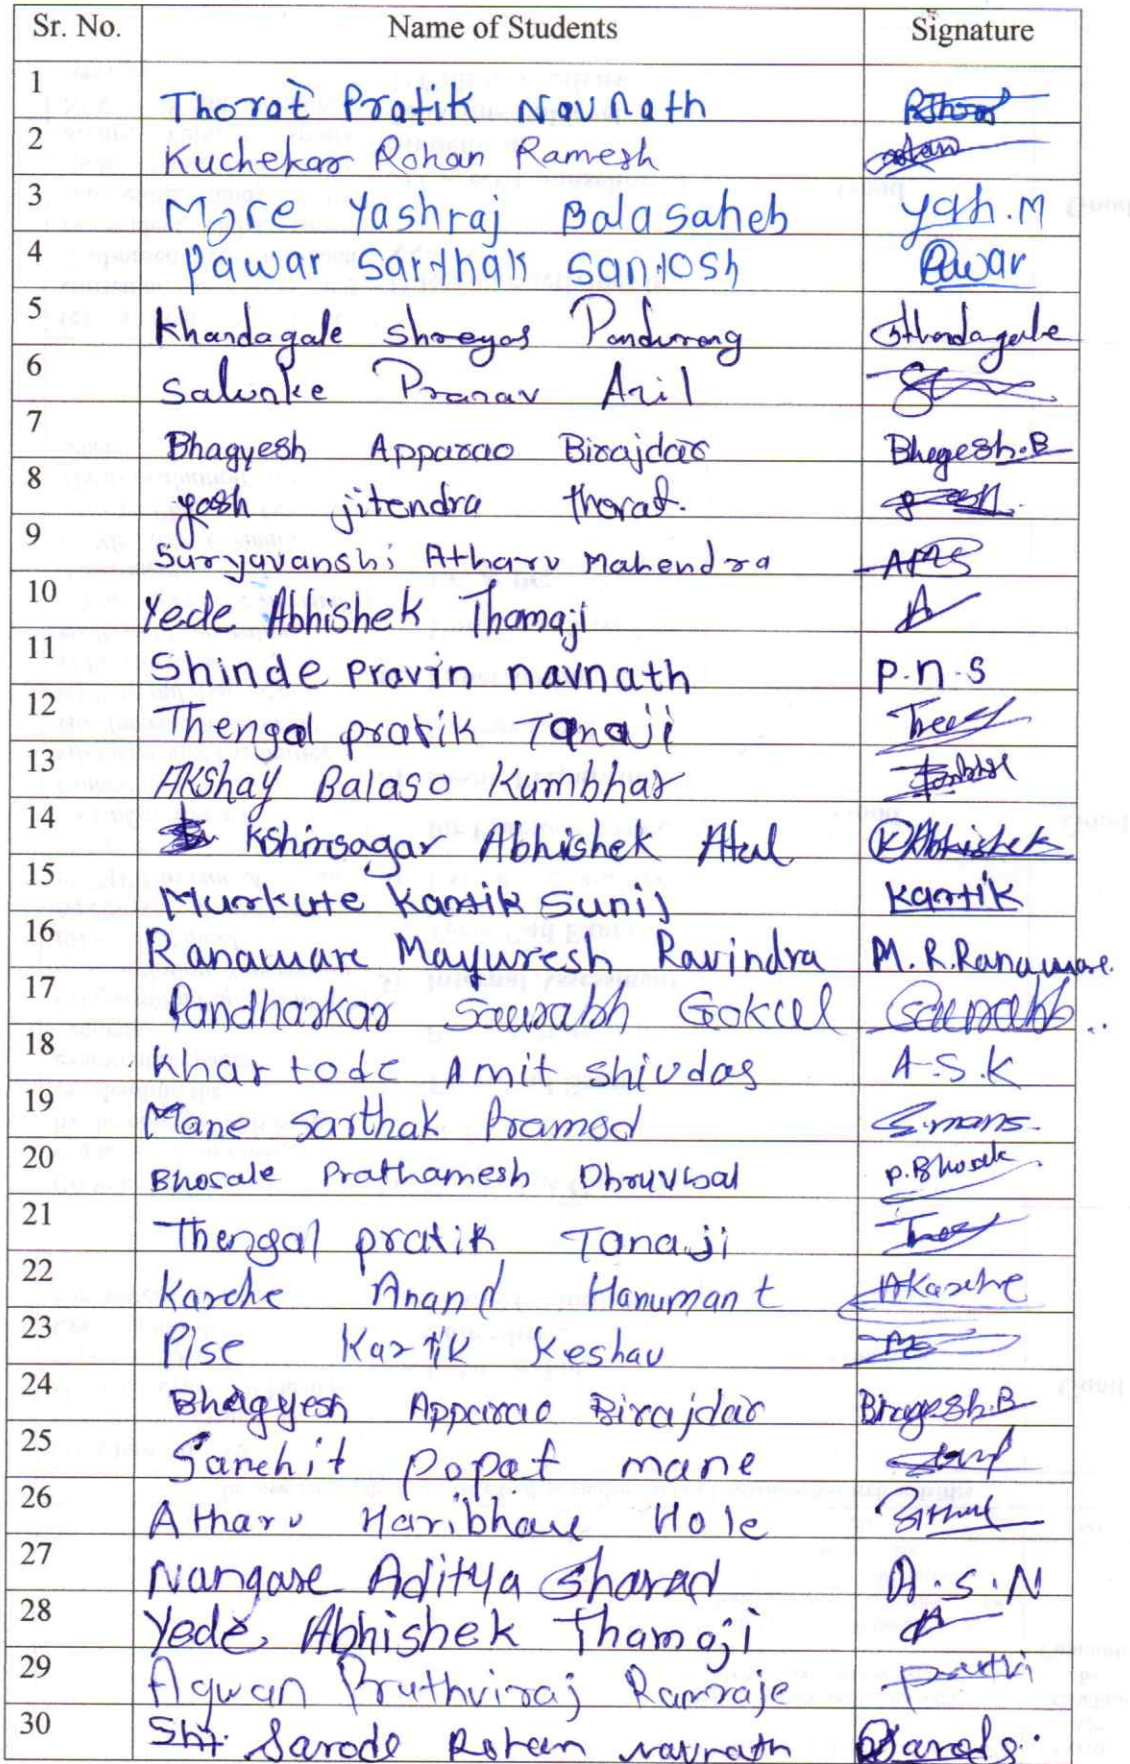 Sr. No. Name of Students Signature
1 Thorat Pratik Navnath
2 Kuchekar Rohan Ramesh
3 More Yashraj Balasaheb yah.M
4 Pawar Sarthak Santosh Pawar
5 Khandagale Shreyas Pandurang Khandagale
6 Salunke Pranav Anil
7 Bhagyesh Apparao Birajdar Bhagesh.B
8 yash jitendra thorat.
9 Suryavanshi Atharv Mahendra AMS
10 Yede Abhishek Thamaji A
11 Shinde Pravin navnath P.n.S
12 Thengal pratik Tanaji
13 Akshay Balaso Kumbhar
14 Kshirsagar Abhishek Atul K Abhishek
15 Murkute Kartik Sunil Kartik
16 Ranaware Mayuresh Ravindra M.R.Ranaware.
17 Pandharkar Saurabh Gokul Saurabh
18 Khartode Amit Shivdas A.S.K
19 Mane Sarthak Pramod S.mane
20 Bhosale Prathamesh Dhruvbal P.Bhosale
21 Thengal pratik Tanaji
22 Karche Anand Hanumant AKarche
23 Pise Kartik Keshav
24 Bhagyesh Apparao Birajdar Bhagesh.B
25 Sanchit Popat mane
26 Atharv Haribhau Hole
27 Nangare Aditya Sharad A.S.N
28 Yede Abhishek Thamaji A
29 Agwan Pruthviraj Ramraje
30 Sarode Rohan navnath Sarode